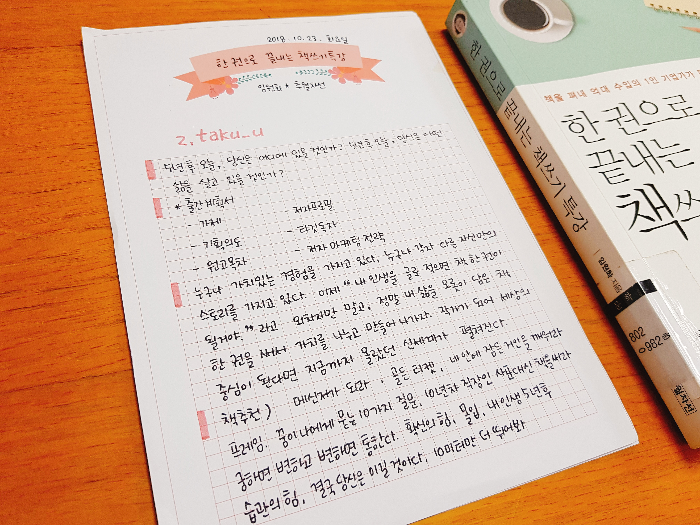 2018. 10. 23. 화요일
한 권으로 끝내는 책쓰기 특강
임원화 * 추월차선
z.taku_u
5년 후 오늘, 당신은 어디에 있을 것인가? 5년 후 오늘, 당신은 어떤
삶을 살고 있을 것인가?
* 출간계획서
- 가제 - 저자프로필
- 기획의도 - 타깃독자
- 원고목차 - 저자 마케팅 전략
누구나 가치있는 경험을 가지고 있다. 누구나 각자 다른 자신만의
스토리를 가지고 있다. 이제 "내 인생을 글로 적으면 책 한 권이
될거야." 라고 외치지만 말고, 정말 내 삶을 오롯이 담은 책
한 권을 써서 가치를 나누고 만들어 나가자. 작가가 되어 세상의
중심이 된다면 지금까지 몰랐던 신세계가 펼쳐진다.
책추천) 메신저가 되라, 골든 티켓, 내 안에 잠든 거인을 깨워라
프레임. 꿈이 나에게 묻는 10가지 질문. 10년차 직장인 사표대신 책을써라
궁하면 변하고 변하면 통한다. 확신의 힘, 몰입, 내 인생 5년후
습관의 힘, 결국 당신은 이길 것이다, 10미터만 더 뛰어봐
한 권으로 끝내는 책쓰기 특강
임원화 지음
802
책을 펴내 억대 수입의 1인 기업가가
한 권으로
끝내는
책쓰